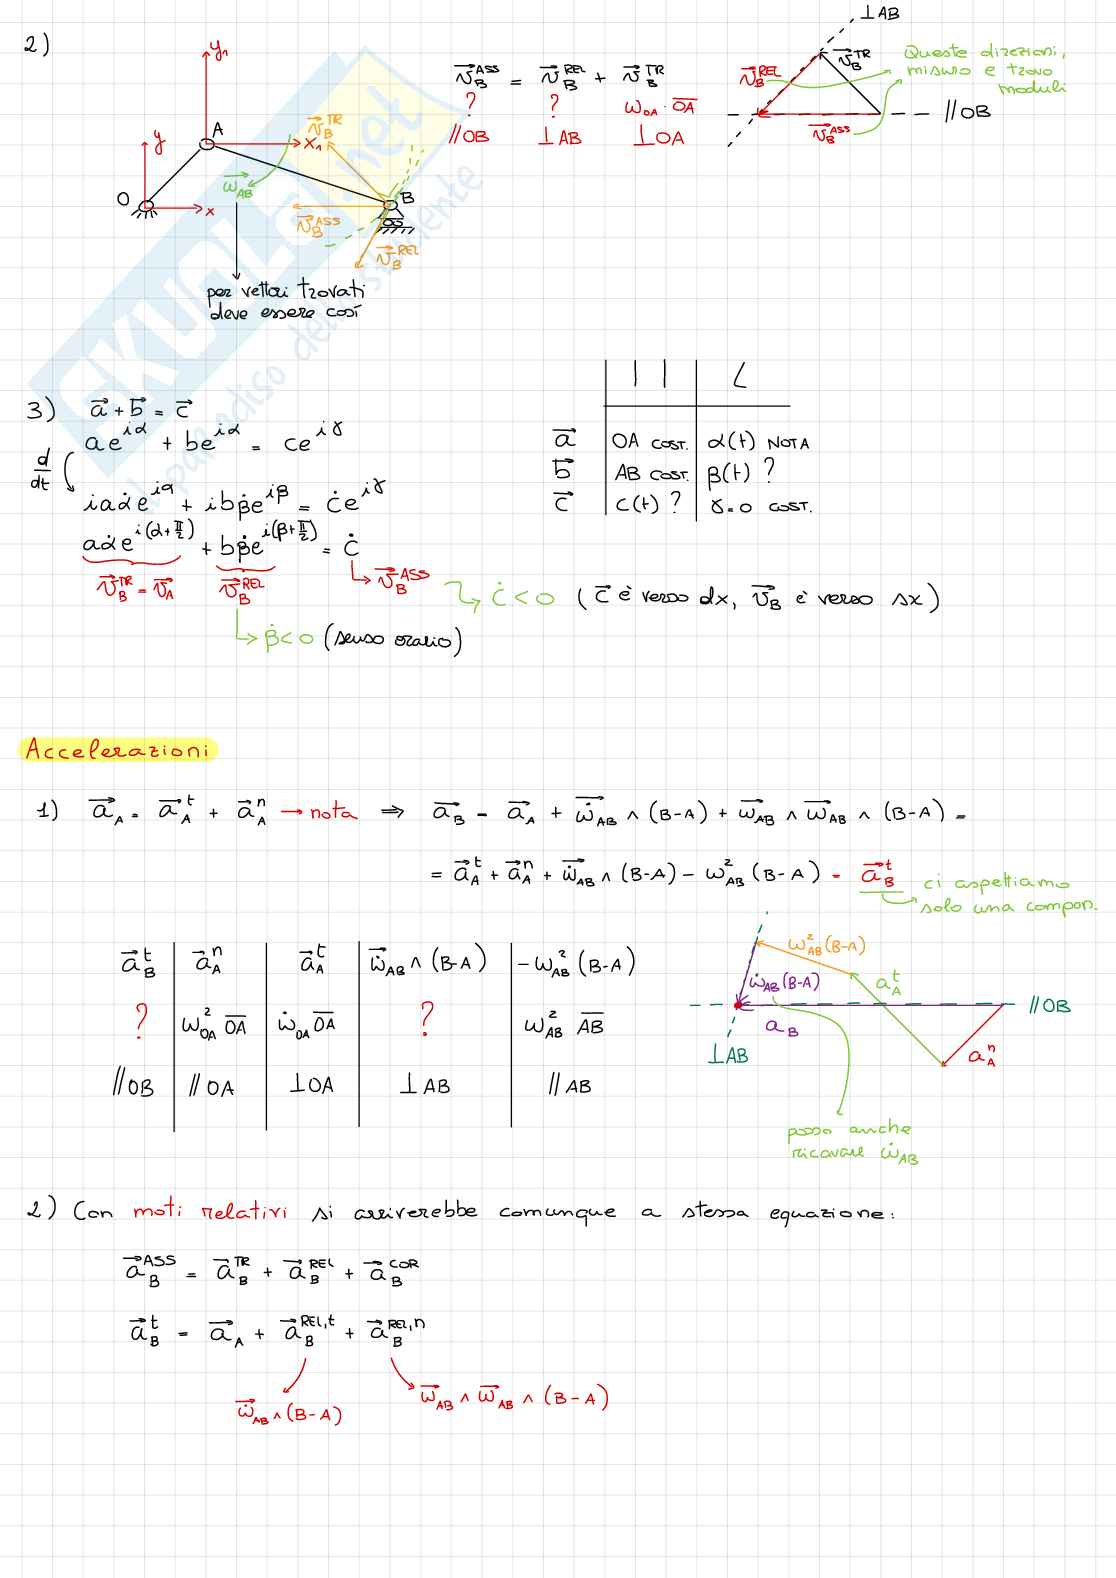 2)
y₁
y
A
x₁
O
x
B
v⃗_B^TR
ω⃗_AB
v⃗_B^ASS
v⃗_B^REL
per vettori trovati
deve essere così
v⃗_B^ASS = v⃗_B^REL + v⃗_B^TR
? ? ω_OA · O̅A̅
//OB ⊥AB ⊥OA
⊥AB
v⃗_B^REL
v⃗_B^TR
v⃗_B^ASS
//OB
Queste direzioni,
misuro e trovo
moduli
SKUOLA.net
il paradiso dello studente
3) a⃗ + b⃗ = c⃗
ae^iα + be^iα = ce^iγ
d/dt
iaα̇e^iα + ibβ̇e^iβ = ċe^iγ
aα̇e^i(α+π/2) + bβ̇e^i(β+π/2) = ċ
v⃗_B^TR = v⃗_A v⃗_B^REL → v⃗_B^ASS
→ ċ < 0 (c⃗ è verso dx, v⃗_B è verso sx)
→ β̇ < 0 (senso orario)
| | ∠
a⃗ OA COST. α(t) NOTA
b⃗ AB COST. β(t) ?
c⃗ c(t) ? γ=0 COST.
Accelerazioni
1) a⃗_A = a⃗_A^t + a⃗_A^n → nota ⇒ a⃗_B = a⃗_A + ω̇⃗_AB ∧ (B-A) + ω⃗_AB ∧ ω⃗_AB ∧ (B-A) =
= a⃗_A^t + a⃗_A^n + ω̇⃗_AB ∧ (B-A) - ω²_AB (B-A) = a⃗_B^t
ci aspettiamo
solo una compon.
a⃗_B^t a⃗_A^n a⃗_A^t ω̇⃗_AB ∧ (B-A) -ω²_AB (B-A)
? ω²_OA O̅A̅ ω̇_OA O̅A̅ ? ω²_AB A̅B̅
//OB //OA ⊥OA ⊥AB //AB
ω²_AB (B-A)
ω̇_AB (B-A)
a_A^t
//OB
a_B
⊥AB
a_A^n
posso anche
ricavare ω̇_AB
2) Con moti relativi si arriverebbe comunque a stessa equazione:
a⃗_B^ASS = a⃗_B^TR + a⃗_B^REL + a⃗_B^COR
a⃗_B^t = a⃗_A + a⃗_B^REL,t + a⃗_B^REL,n
ω̇⃗_AB ∧ (B-A) ω⃗_AB ∧ ω⃗_AB ∧ (B-A)